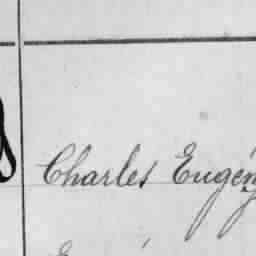 Charles Eugén